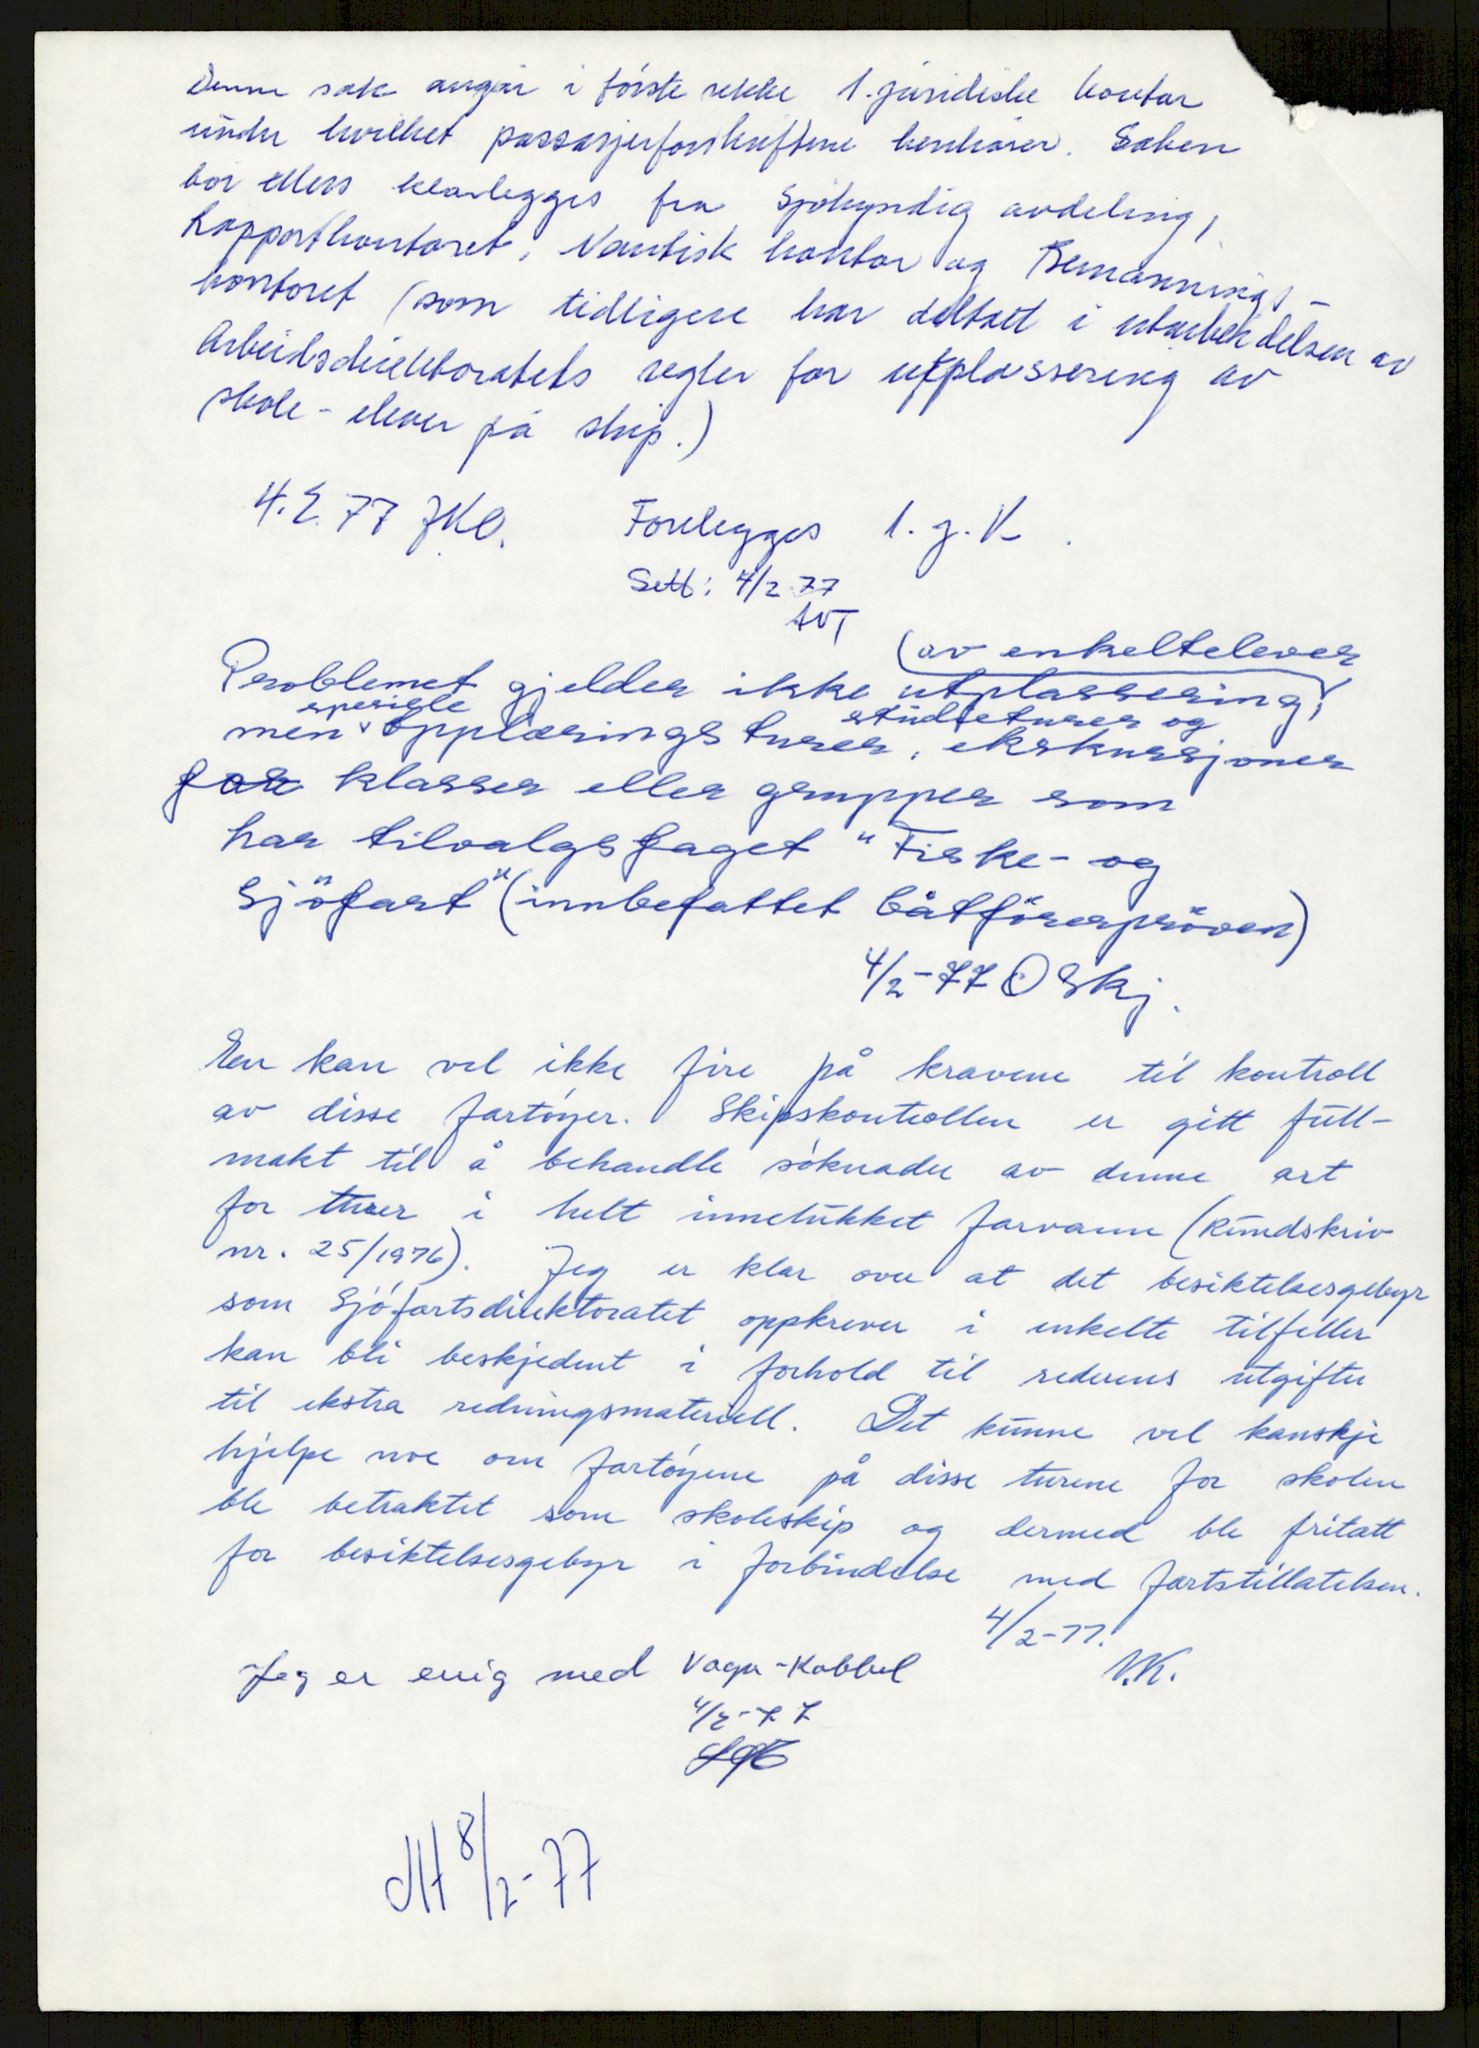 Denne sak angår i første rekke 1. juridiske kontor
under hvilket passasjerforskriftene henhører. Saken
bør ellers klarlegges fra Sjøkyndig avdeling,
Rapportkontoret, Nautisk kontor og Bemannings-
kontoret (som tidligere har deltatt i utarbeidelsen av
Arbeidsdirektoratets regler for utplassering av
skole-elever på skip.)
4.2.77 JKO. Forelegges 1. j. K.
Sett: 4/2 77
AVT
(av enkeltelever
Problemet gjelder ikke utplassering,
spesielle studieturer og
men opplæringsturer, ekskursjoner
for klasser eller grupper som
har tilvalgsfaget "Fiske- og
Sjöfart" (innbefattet båtførerprøven)
4/2-77 O Skj.
En kan vel ikke fire på kravene til kontroll
av disse fartøyer. Skipskontrollen er gitt full-
makt til å behandle søknader av denne art
for turer i helt innelukket farvann (Rundskriv
nr. 25/1976). Jeg er klar over at det besiktelsesgebyr
som Sjøfartsdirektoratet oppkrever i enkelte tilfeller
kan bli beskjedent i forhold til rederens utgifter
til ekstra redningsmateriell. Det kunne vel kanskje
hjelpe noe om fartøyene på disse turene for skolen
ble betraktet som skoleskip og dermed ble fritatt
for besiktelsesgebyr i forbindelse med fartstillatelsen.
4/2-77.
V.K.
Jeg er enig med Vagn-Kobbel
4/2-77
MH 8/2-77